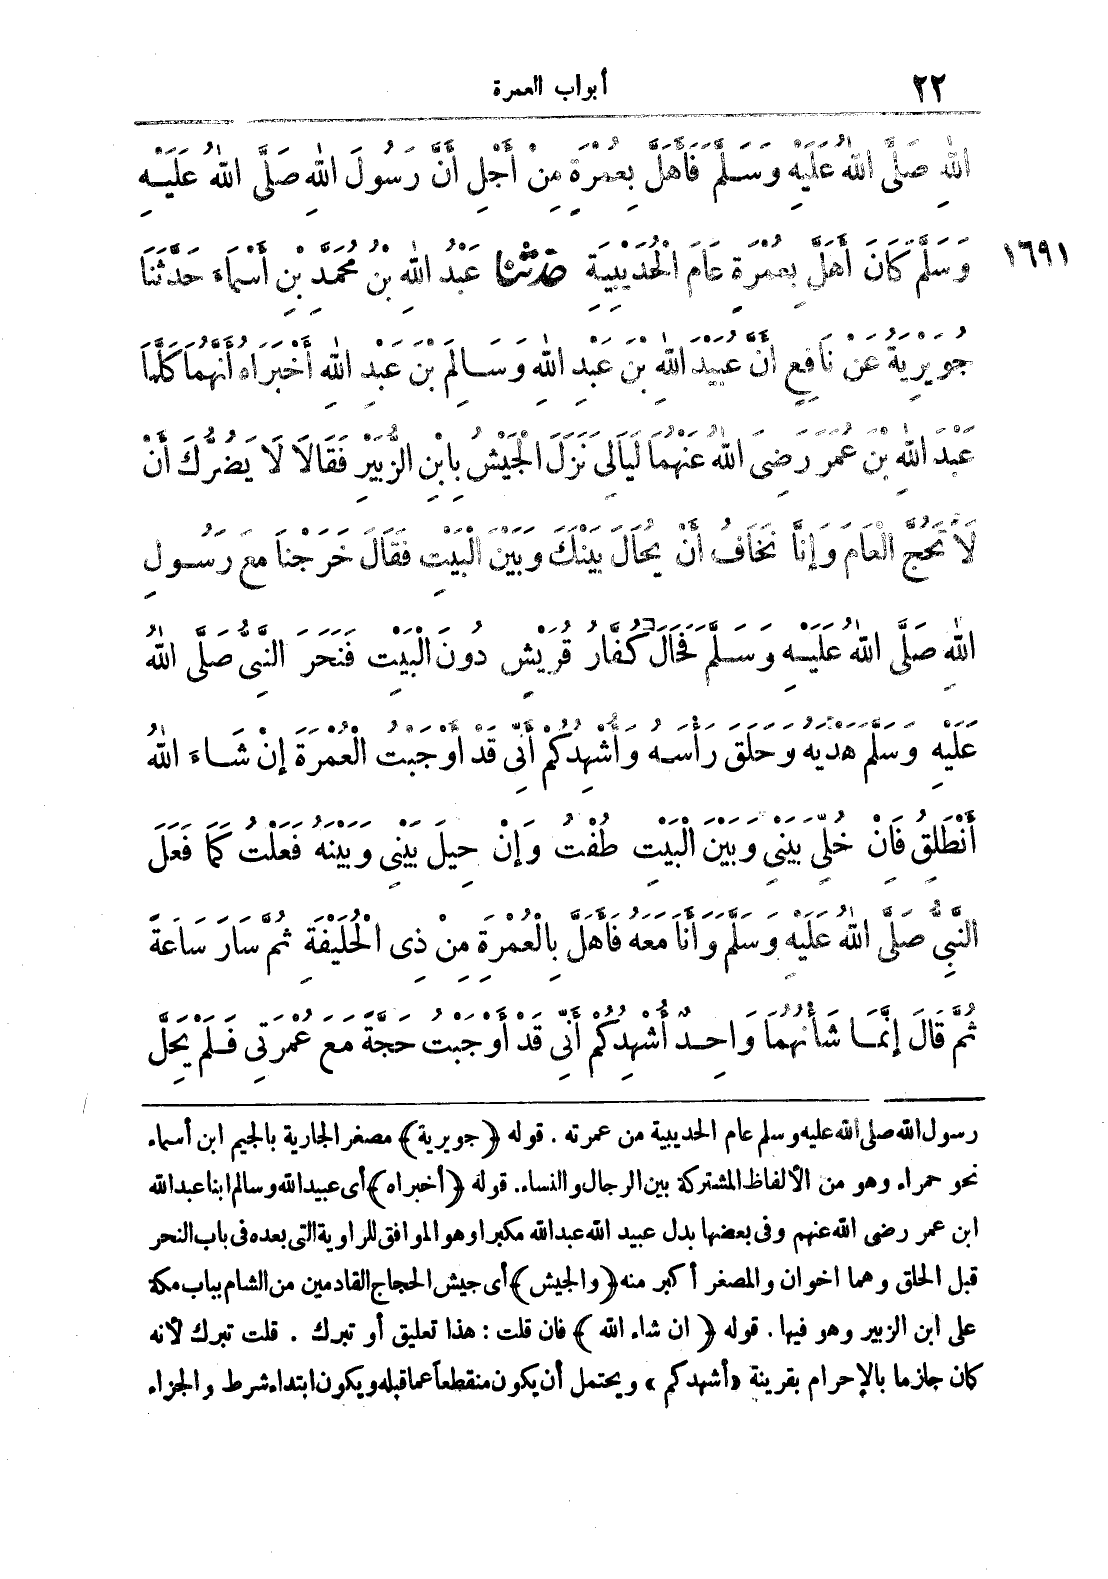 ٢٢
أبواب العمرة
اللهِ صَلَّى اللهُ عَلَيْهِ وَسَلَّمَ فَأَهَلَّ بِعُمْرَةٍ مِنْ أَجْلِ أَنَّ رَسُولَ اللهِ صَلَّى اللهُ عَلَيْهِ
وَسَلَّمَ كَانَ أَهَلَّ بِعُمْرَةٍ عَامَ الْحُدَيْبِيَةِ حَدَّثَنَا عَبْدُ اللهِ بْنُ مُحَمَّدِ بْنِ أَسْمَاءَ حَدَّثَنَا
١٦٩١
جُوَيْرِيَةُ عَنْ نَافِعٍ أَنَّ عُبَيْدَ اللهِ بْنَ عَبْدِ اللهِ وَسَالِمَ بْنَ عَبْدِ اللهِ أَخْبَرَاهُ أَنَّهُمَا كَلَّمَا
عَبْدَ اللهِ بْنَ عُمَرَ رَضِىَ اللهُ عَنْهُمَا لَيَالِىَ نَزَلَ الْجَيْشُ بِابْنِ الزُّبَيْرِ فَقَالَا لَا يَضُرُّكَ أَنْ
لَا تَحُجَّ الْعَامَ وَإِنَّا نَخَافُ أَنْ يُحَالَ بَيْنَكَ وَبَيْنَ الْبَيْتِ فَقَالَ خَرَجْنَا مَعَ رَسُولِ
اللهِ صَلَّى اللهُ عَلَيْهِ وَسَلَّمَ فَحَالَ كُفَّارُ قُرَيْشٍ دُونَ الْبَيْتِ فَنَحَرَ النَّبِىُّ صَلَّى اللهُ
عَلَيْهِ وَسَلَّمَ هَدْيَهُ وَحَلَقَ رَأْسَهُ وَأُشْهِدُكُمْ أَنِّى قَدْ أَوْجَبْتُ الْعُمْرَةَ إِنْ شَاءَ اللهُ
أَنْطَلِقُ فَإِنْ خُلِّىَ بَيْنِى وَبَيْنَ الْبَيْتِ طُفْتُ وَإِنْ حِيلَ بَيْنِى وَبَيْنَهُ فَعَلْتُ كَمَا فَعَلَ
النَّبِىُّ صَلَّى اللهُ عَلَيْهِ وَسَلَّمَ وَأَنَا مَعَهُ فَأَهَلَّ بِالْعُمْرَةِ مِنْ ذِى الْحُلَيْفَةِ ثُمَّ سَارَ سَاعَةً
ثُمَّ قَالَ إِنَّمَا شَأْنُهُمَا وَاحِدٌ أُشْهِدُكُمْ أَنِّى قَدْ أَوْجَبْتُ حَجَّةً مَعَ عُمْرَتِى فَلَمْ يَحِلَّ
رسول الله صلى الله عليه وسلم عام الحديبية من عمرته . قوله ﴿جويرية﴾ مصغر الجارية بالجيم ابن أسماء
نحو حمراء وهو من الألفاظ المشتركة بين الرجال والنساء. قوله ﴿أخبراه﴾ أى عبيدالله وسالم ابنا عبدالله
ابن عمر رضى الله عنهم وفى بعضها بدل عبيد الله عبدالله مكبرا وهو الموافق للراوية التى بعده فى باب النحر
قبل الحلق وهما اخوان والمصغر أكبر منه ﴿والجيش﴾ أى جيش الحجاج القادمين من الشام بباب مكة
على ابن الزبير وهو فيها. قوله ﴿ان شاء الله﴾ فان قلت: هذا تعليق أو تبرك . قلت تبرك لأنه
كان جازما بالإحرام بقرينة «أشهدكم» ويحتمل أن يكون منقطعاً عما قبله ويكون ابتداء شرط والجزاء